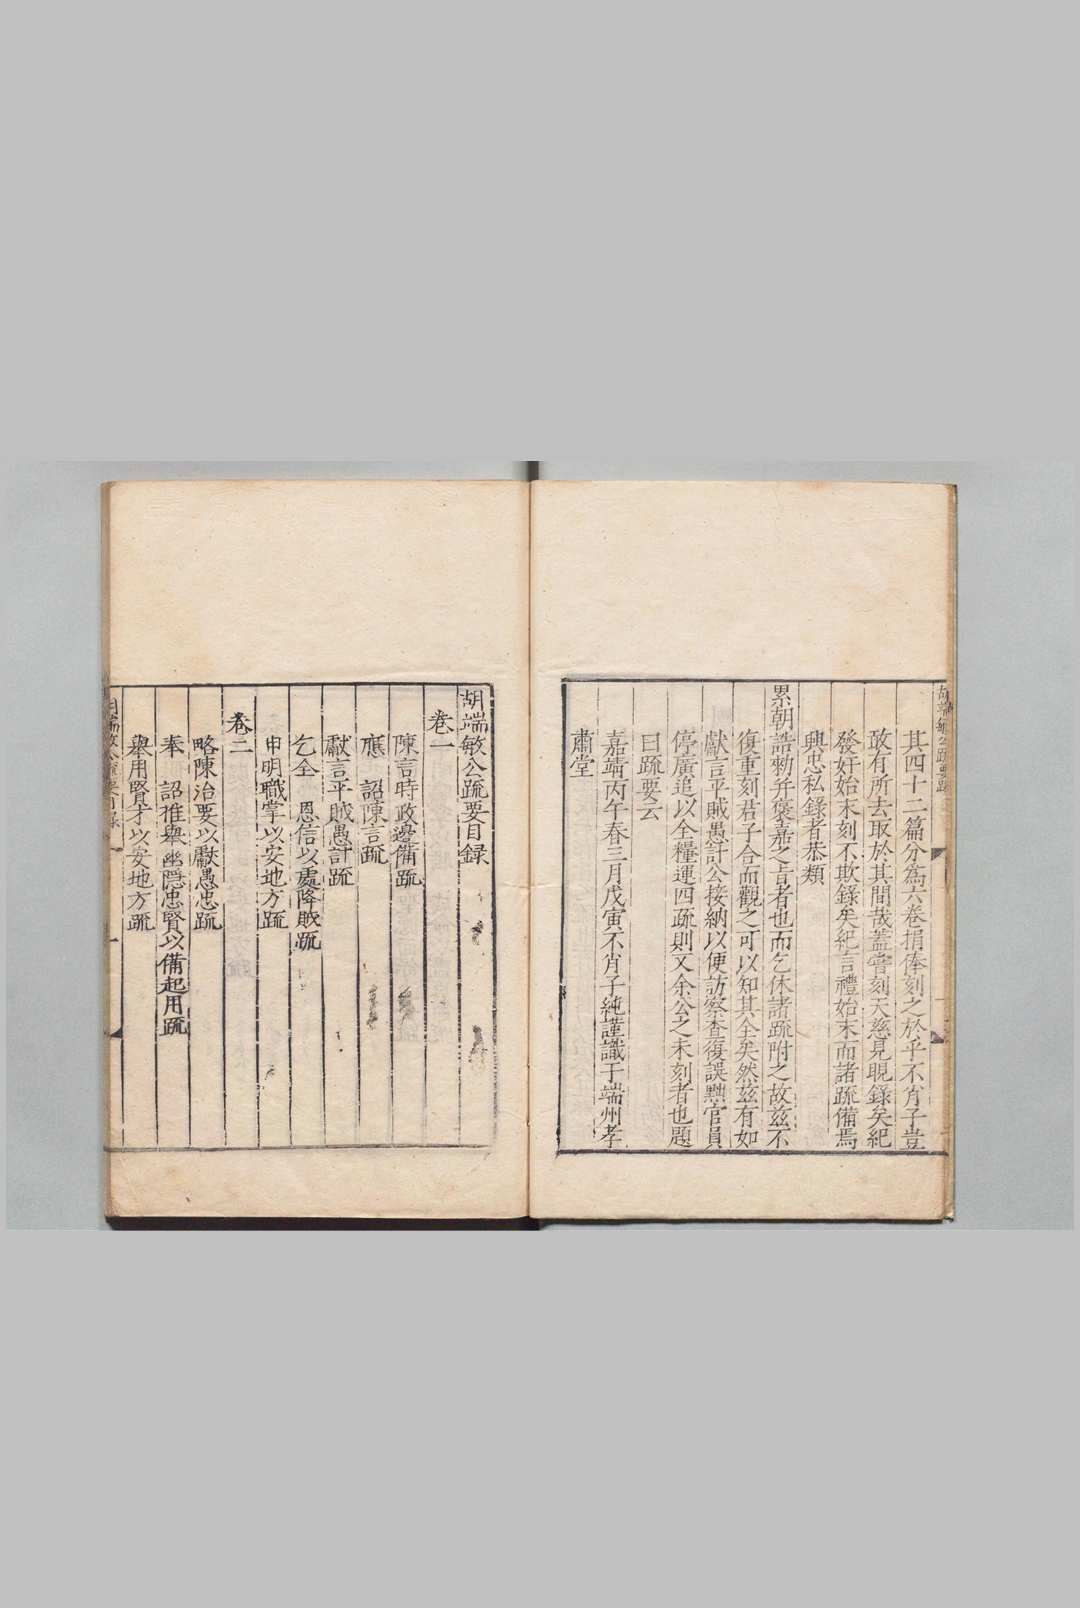 其四十二篇分爲六卷捐俸刻之於乎不肖子豈
敢有所去取於其間哉蓋嘗刻天慈見晛錄矣紀
發奸始末刻不欺錄矣紀言禮始末而諸疏備焉
興忠私錄者恭類
累朝誥勑并褒嘉之旨者也而乞休諸疏附之故兹不
復重刻君子合而觀之可以知其全矣然兹有如
獻言平賊愚計公接納以便訪察查復誤黜官員
停廣追以全糧運四疏則又余公之未刻者也題
曰疏要云
嘉靖丙午春三月戊寅不肖子純謹識于端州孝
肅堂
胡端敏公疏要目録
卷一
陳言時政邊備疏
應 詔陳言疏
獻言平賊愚計疏
乞全 恩信以處降賊疏
申明職掌以安地方疏
卷二
略陳治要以獻愚忠疏
奉 詔推舉幽隠忠賢以備起用疏
舉用賢才以安地方疏